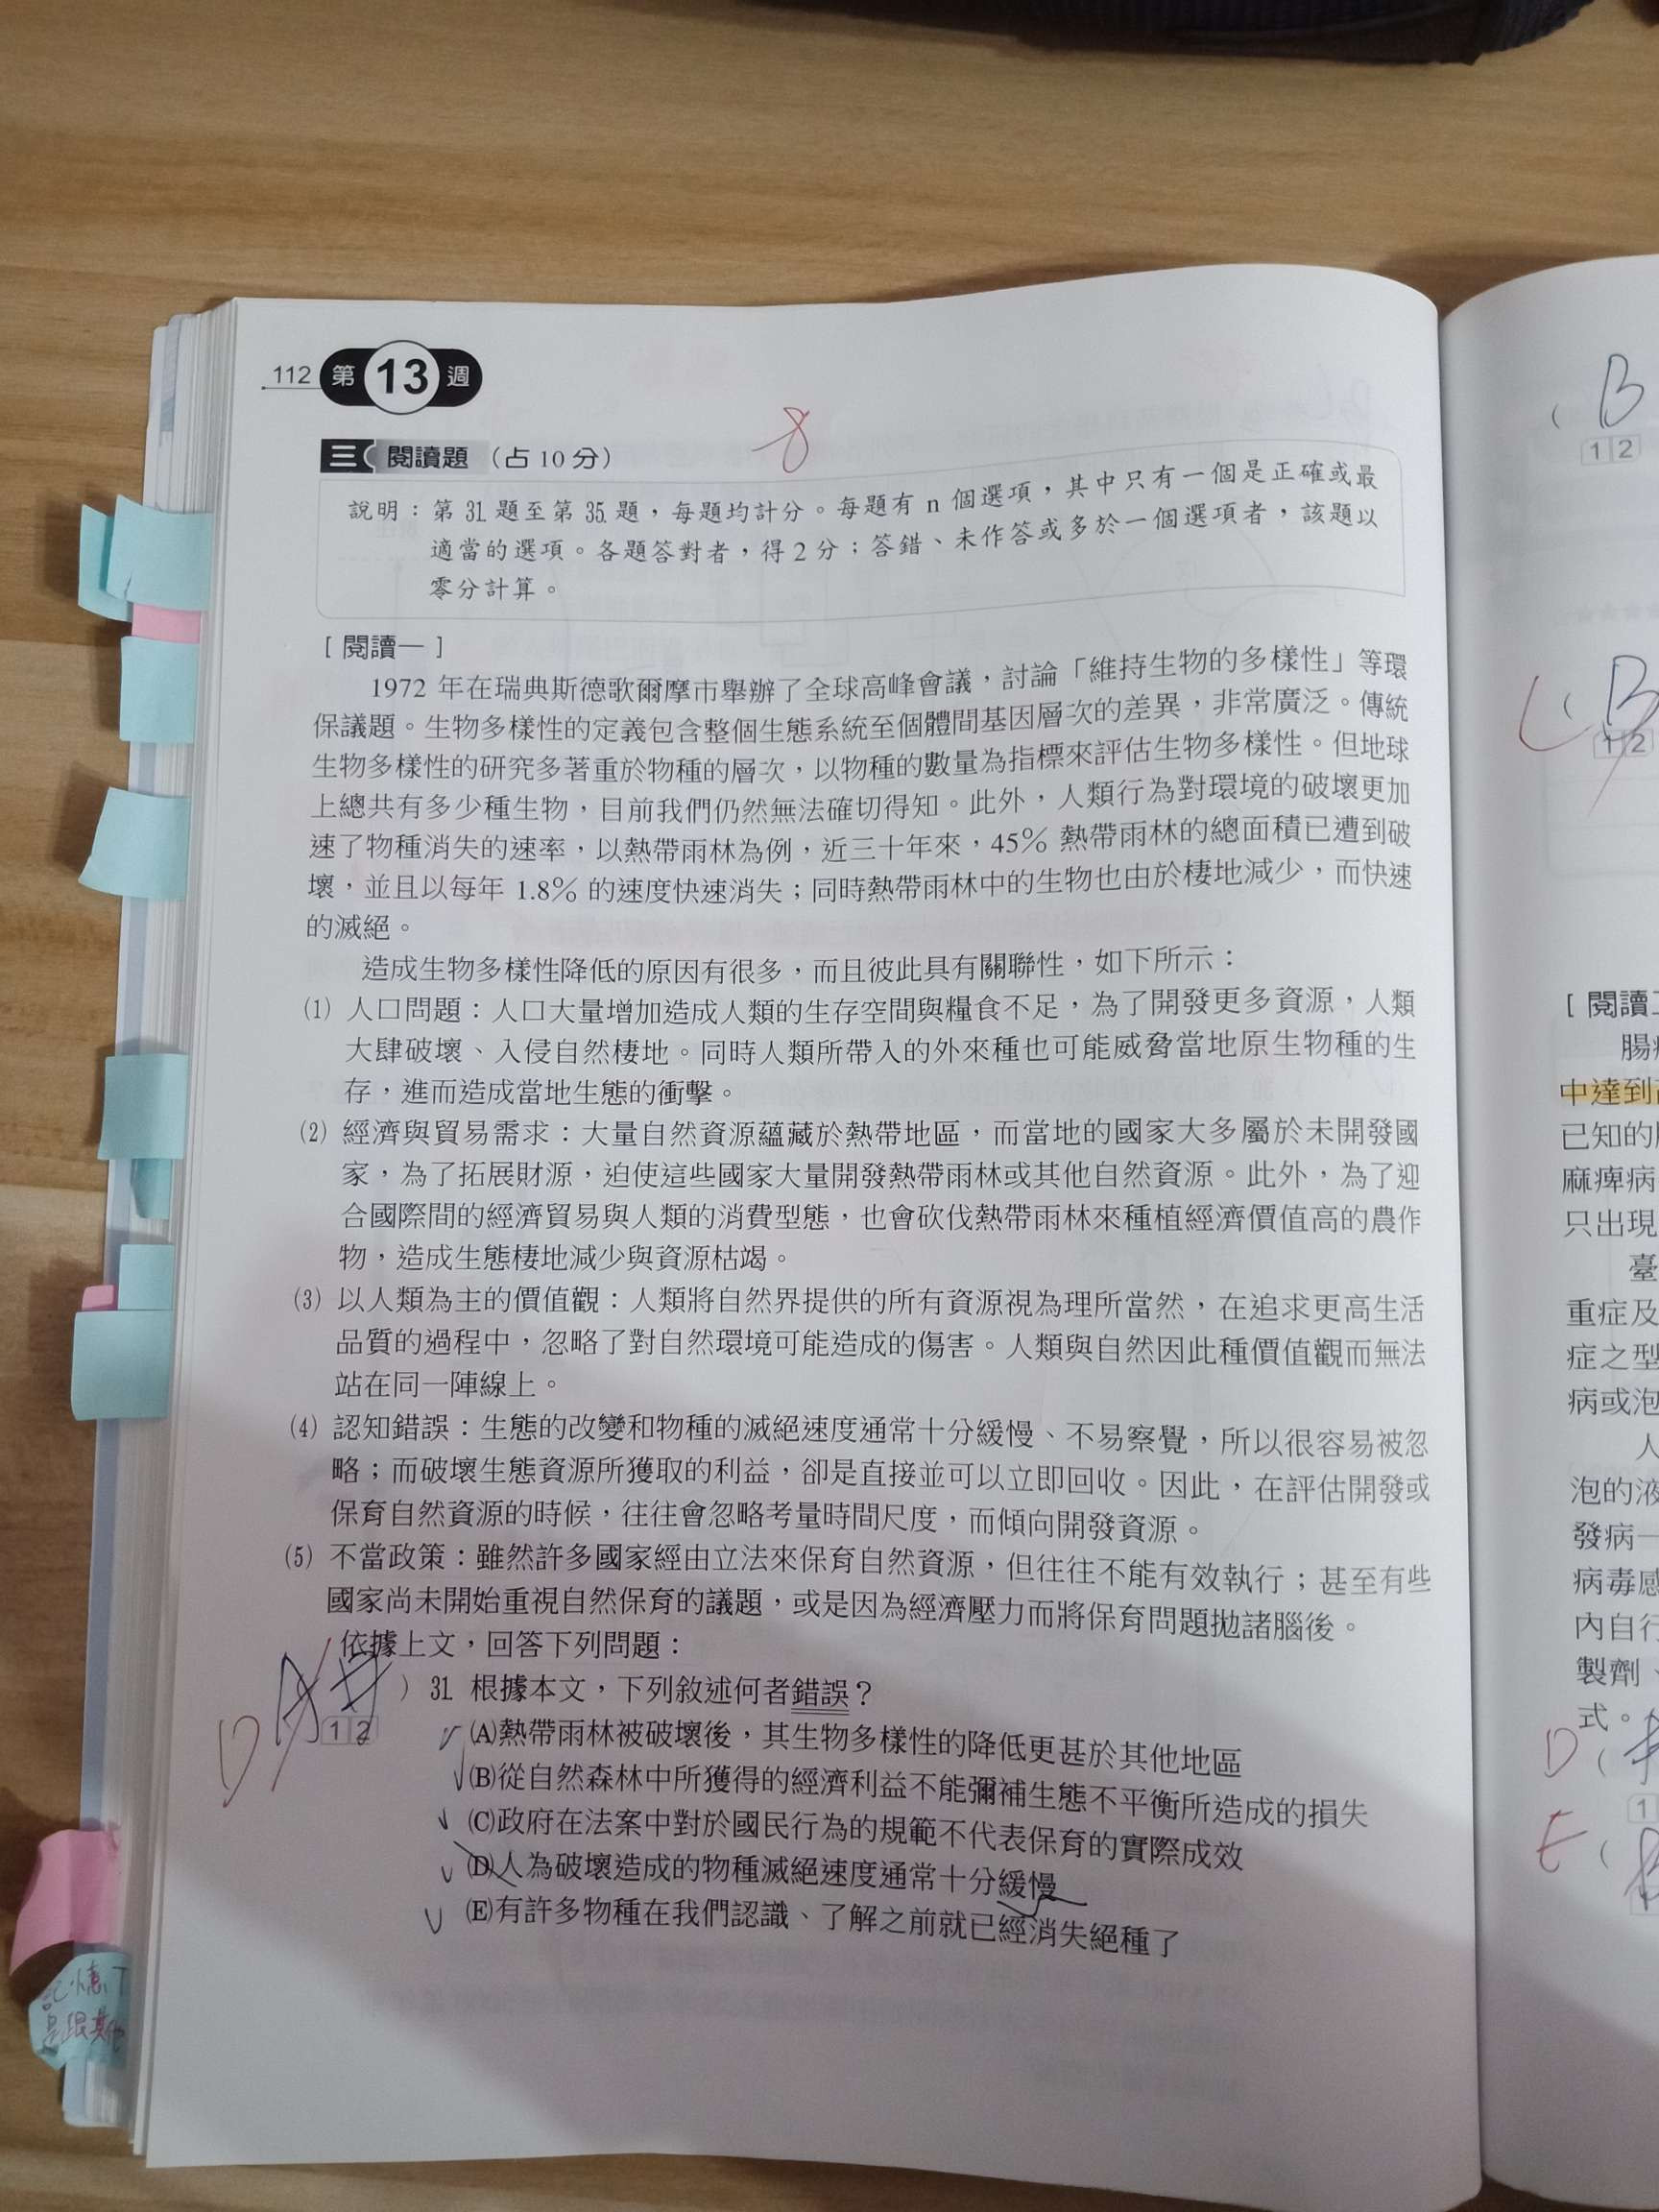 112 第 13 週
8
三 閱讀題 （占 10 分）
說明：第 31 題至第 35 題，每題均計分。每題有 n 個選項，其中只有一個是正確或最
適當的選項。各題答對者，得 2 分；答錯、未作答或多於一個選項者，該題以
零分計算。
［ 閱讀一 ］
1972 年在瑞典斯德歌爾摩市舉辦了全球高峰會議，討論「維持生物的多樣性」等環
保議題。生物多樣性的定義包含整個生態系統至個體間基因層次的差異，非常廣泛。傳統
生物多樣性的研究多著重於物種的層次，以物種的數量為指標來評估生物多樣性。但地球
上總共有多少種生物，目前我們仍然無法確切得知。此外，人類行為對環境的破壞更加
速了物種消失的速率，以熱帶雨林為例，近三十年來，45％ 熱帶雨林的總面積已遭到破
壞，並且以每年 1.8％ 的速度快速消失；同時熱帶雨林中的生物也由於棲地減少，而快速
的滅絕。
造成生物多樣性降低的原因有很多，而且彼此具有關聯性，如下所示：
(1) 人口問題：人口大量增加造成人類的生存空間與糧食不足，為了開發更多資源，人類
大肆破壞、入侵自然棲地。同時人類所帶入的外來種也可能威脅當地原生物種的生
存，進而造成當地生態的衝擊。
(2) 經濟與貿易需求：大量自然資源蘊藏於熱帶地區，而當地的國家大多屬於未開發國
家，為了拓展財源，迫使這些國家大量開發熱帶雨林或其他自然資源。此外，為了迎
合國際間的經濟貿易與人類的消費型態，也會砍伐熱帶雨林來種植經濟價值高的農作
物，造成生態棲地減少與資源枯竭。
(3) 以人類為主的價值觀：人類將自然界提供的所有資源視為理所當然，在追求更高生活
品質的過程中，忽略了對自然環境可能造成的傷害。人類與自然因此種價值觀而無法
站在同一陣線上。
(4) 認知錯誤：生態的改變和物種的滅絕速度通常十分緩慢、不易察覺，所以很容易被忽
略；而破壞生態資源所獲取的利益，卻是直接並可以立即回收。因此，在評估開發或
保育自然資源的時候，往往會忽略考量時間尺度，而傾向開發資源。
(5) 不當政策：雖然許多國家經由立法來保育自然資源，但往往不能有效執行；甚至有些
國家尚未開始重視自然保育的議題，或是因為經濟壓力而將保育問題拋諸腦後。
依據上文，回答下列問題：
D A ）31. 根據本文，下列敘述何者錯誤？
1 2
(A)熱帶雨林被破壞後，其生物多樣性的降低更甚於其他地區
(B)從自然森林中所獲得的經濟利益不能彌補生態不平衡所造成的損失
(C)政府在法案中對於國民行為的規範不代表保育的實際成效
(D)人為破壞造成的物種滅絕速度通常十分緩慢
(E)有許多物種在我們認識、了解之前就已經消失絕種了
記憶T
是跟其他
（ B
1 2
（ B
1 2
［ 閱讀
腸
中達到
已知的
麻痺病
只出現
臺
重症及
症之型
病或泡
人
泡的液
發病一
病毒感
內自行
製劑、
式。
D （
1
E （